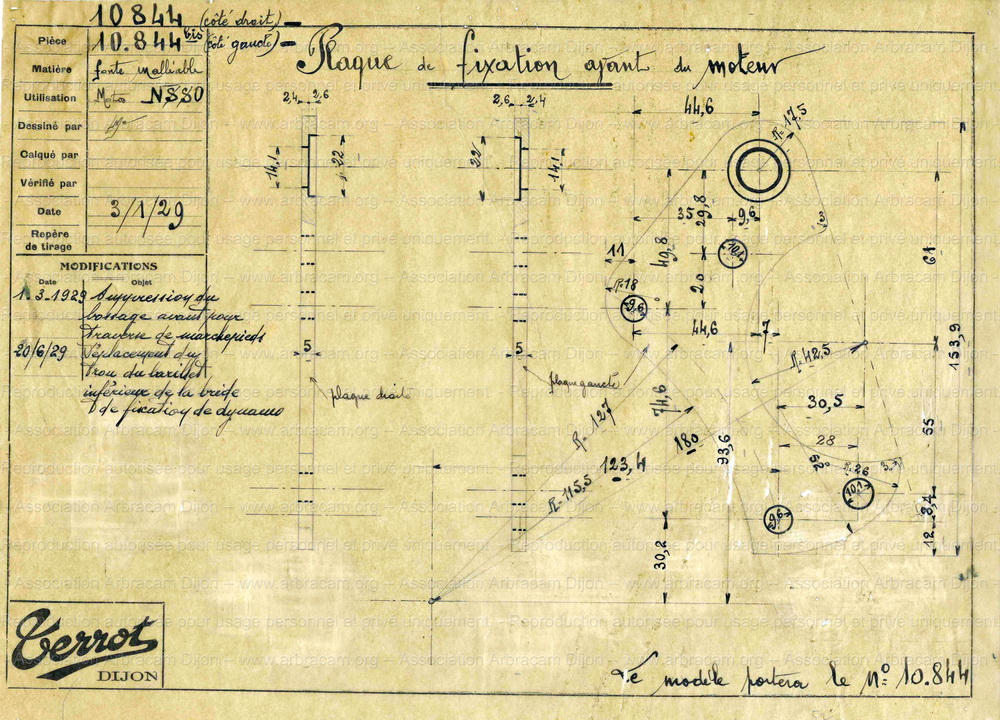 10844 (côté droit) –
Pièce 10.844 bis (côté gauche) –
Matière fonte malléable
Utilisation Motos NSS0
Dessiné par
Calqué par
Vérifié par
Date 3/1/29
Repère de tirage
MODIFICATIONS
Date Objet
1.3.1929 Suppression du
bossage avant pour
traverse de marchepieds
20/6/29 Déplacement du
trou du barillet
inférieur de la bride
de fixation de dynamo
Plaque de fixation avant du moteur
2,4 2,6
2,6 2,4
14,1
22
22
14,1
5
5
plaque droite
plaque gauche
44,6
R=17,5
35
29,8
9,6
49,8
10,1
11
20
R=18
9,6
44,6
7
61
153,9
R=42,5
30,5
55
28
R=127
74,6
180
93,6
62
R=26
123,4
R=115,5
10,1
9,6
8,4
12
30,2
Terrot
DIJON
Le modèle portera le N° 10.844
Association Arbracam Dijon – www.arbracam.org
Reproduction autorisée pour usage personnel et privé uniquement